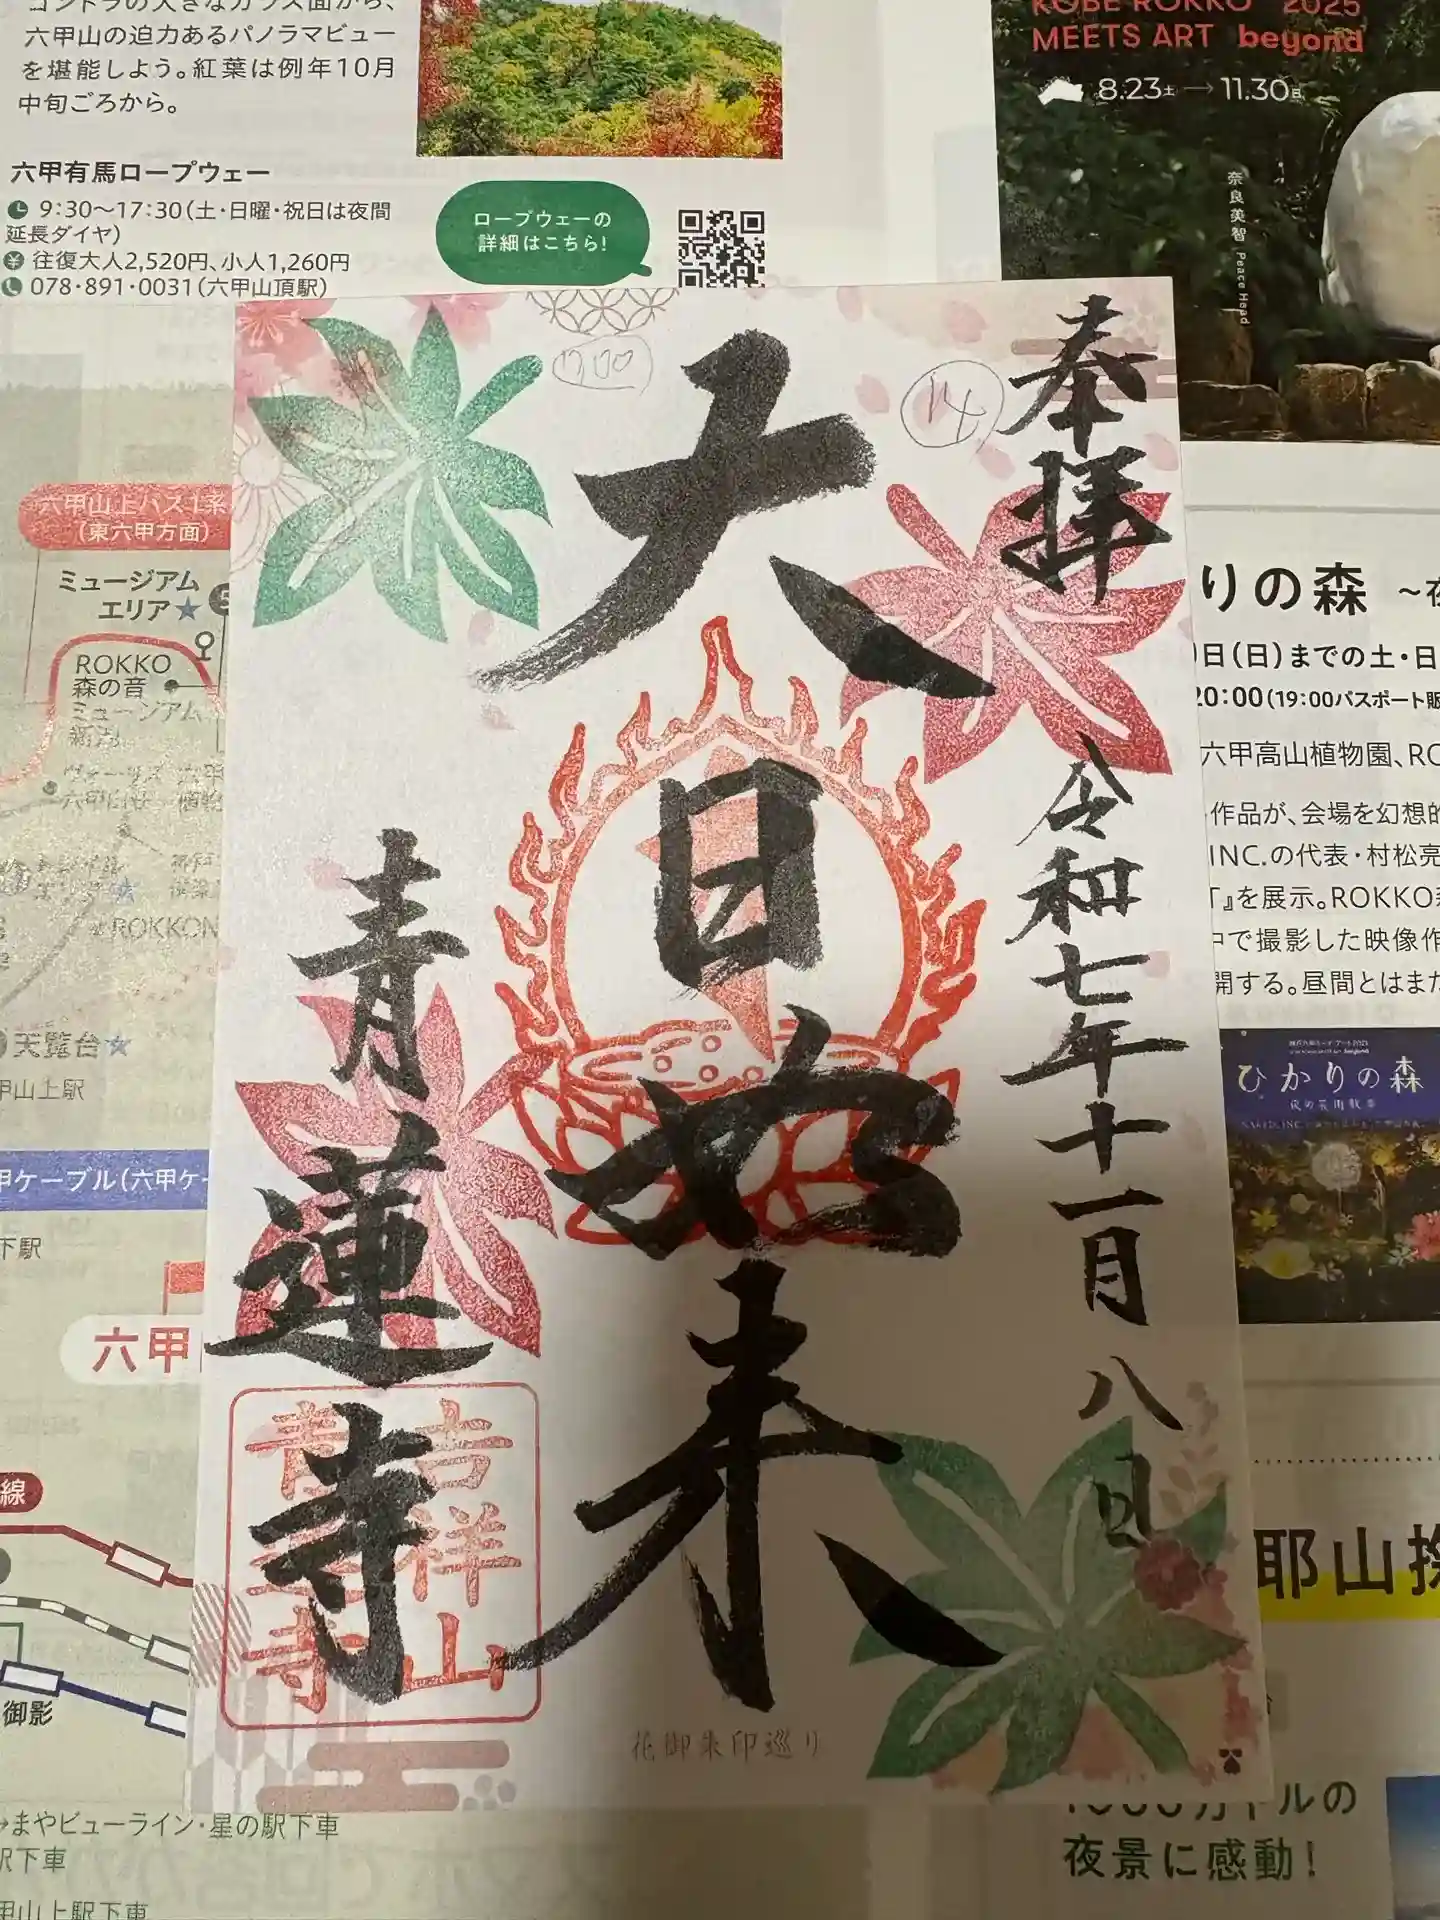 六甲山の迫力あるパノラマビュー
を堪能しよう。紅葉は例年10月
中旬ごろから。
六甲有馬ロープウェー
9:30〜17:30(土・日曜・祝日は夜間
延長ダイヤ)
往復大人2,520円、小人1,260円
078・891・0031(六甲山頂駅)
ロープウェーの
詳細はこちら!
KOBE ROKKO 2025
MEETS ART beyond
8.23土→11.30日
奈良美智 Peace Head
奉拝
令和七年十一月八日
大日如来
青蓮寺
700
14
吉祥山
青蓮寺
花御朱印巡り
六甲山上バス1系
(東六甲方面)
ミュージアム
エリア★
ROKKO
森の音
ミュージアム
天覧台★
甲山上駅
甲ケーブル(六甲ケ
下駅
六甲
線
御影
まやビューライン・星の駅下車
駅下車
甲山上駅下車
りの森 〜夜
日(日)までの土・日
20:00(19:00パスポート販
六甲高山植物園、RO
作品が、会場を幻想的
INC.の代表・村松亮
』を展示。ROKKO森
中で撮影した映像作
開する。昼間とはまた
ひかりの森
夜の芸術散歩
耶山探
1000万ドルの
夜景に感動!